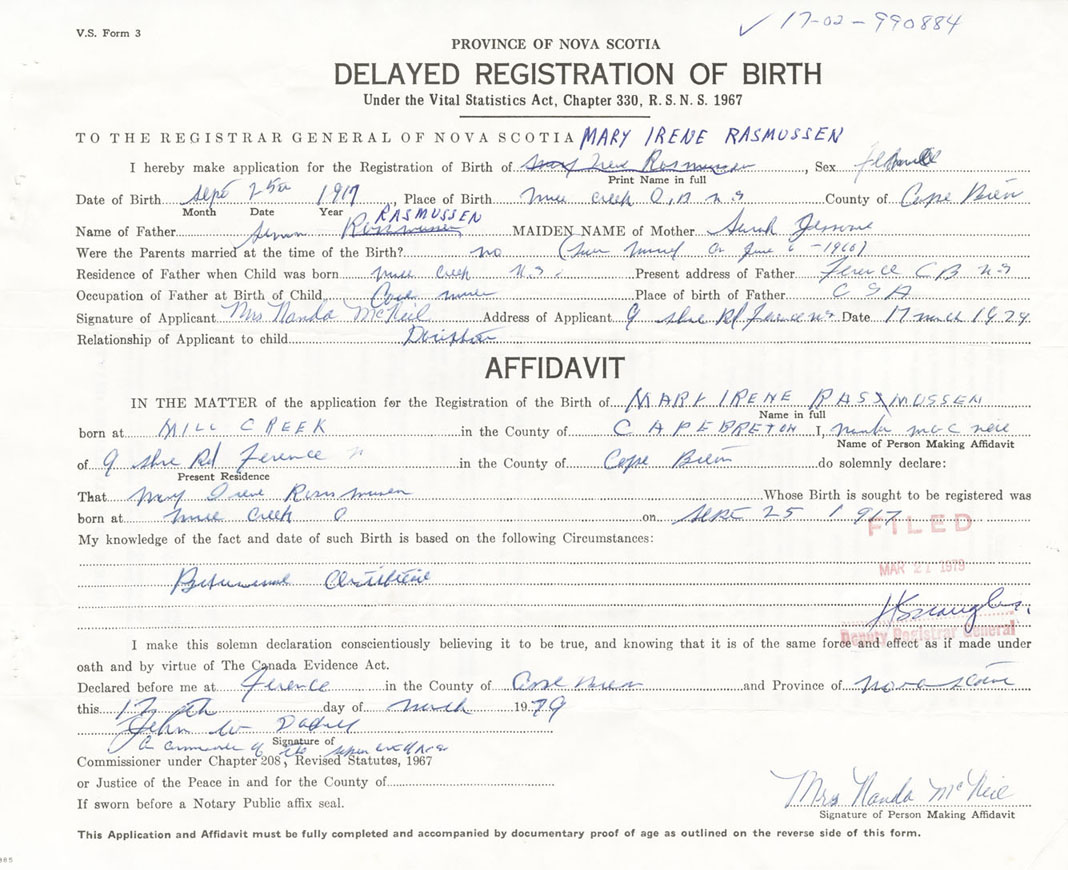 V.S. Form 3
✓ 17-02-990884
PROVINCE OF NOVA SCOTIA
DELAYED REGISTRATION OF BIRTH
Under the Vital Statistics Act, Chapter 330, R. S. N. S. 1967
TO THE REGISTRAR GENERAL OF NOVA SCOTIA MARY IRENE RASMUSSEN
I hereby make application for the Registration of Birth of Mary Irene Rasmussen, Sex
Print Name in full
Date of Birth Sept 25 1917, Place of Birth Creek N.S County of Cape
Month Date Year
RASMUSSEN
Name of Father MAIDEN NAME of Mother Sarah
Were the Parents married at the time of the Birth? no ( on June 6 -1966)
Residence of Father when Child was born Creek N.S. Present address of Father Ference C B N.S
Occupation of Father at Birth of Child Place of birth of Father
Signature of Applicant Mrs Nanda McNeil Address of Applicant 9 shre Rd Ference N.S Date 17 march 1979
Relationship of Applicant to child
AFFIDAVIT
IN THE MATTER of the application for the Registration of the Birth of MARY IRENE RASXMUSSEN
Name in full
born at MILL CREEK in the County of CAPEBRETON I,
Name of Person Making Affidavit
of 9 shre Rd Ference in the County of Cape do solemnly declare:
Present Residence
That Mary Irene Rasmussen Whose Birth is sought to be registered was
born at Creek on Sept 25 1917
FILED
My knowledge of the fact and date of such Birth is based on the following Circumstances:
MAR 21 1979
Deputy Registrar General
I make this solemn declaration conscientiously believing it to be true, and knowing that it is of the same force and effect as if made under
oath and by virtue of The Canada Evidence Act.
Declared before me at Ference in the County of Cape and Province of
this 17 th day of march 1979
John W
A of the
Signature of
Commissioner under Chapter 208, Revised Statutes, 1967
or Justice of the Peace in and for the County of
If sworn before a Notary Public affix seal.
Mrs Nanda McNeil
Signature of Person Making Affidavit
This Application and Affidavit must be fully completed and accompanied by documentary proof of age as outlined on the reverse side of this form.